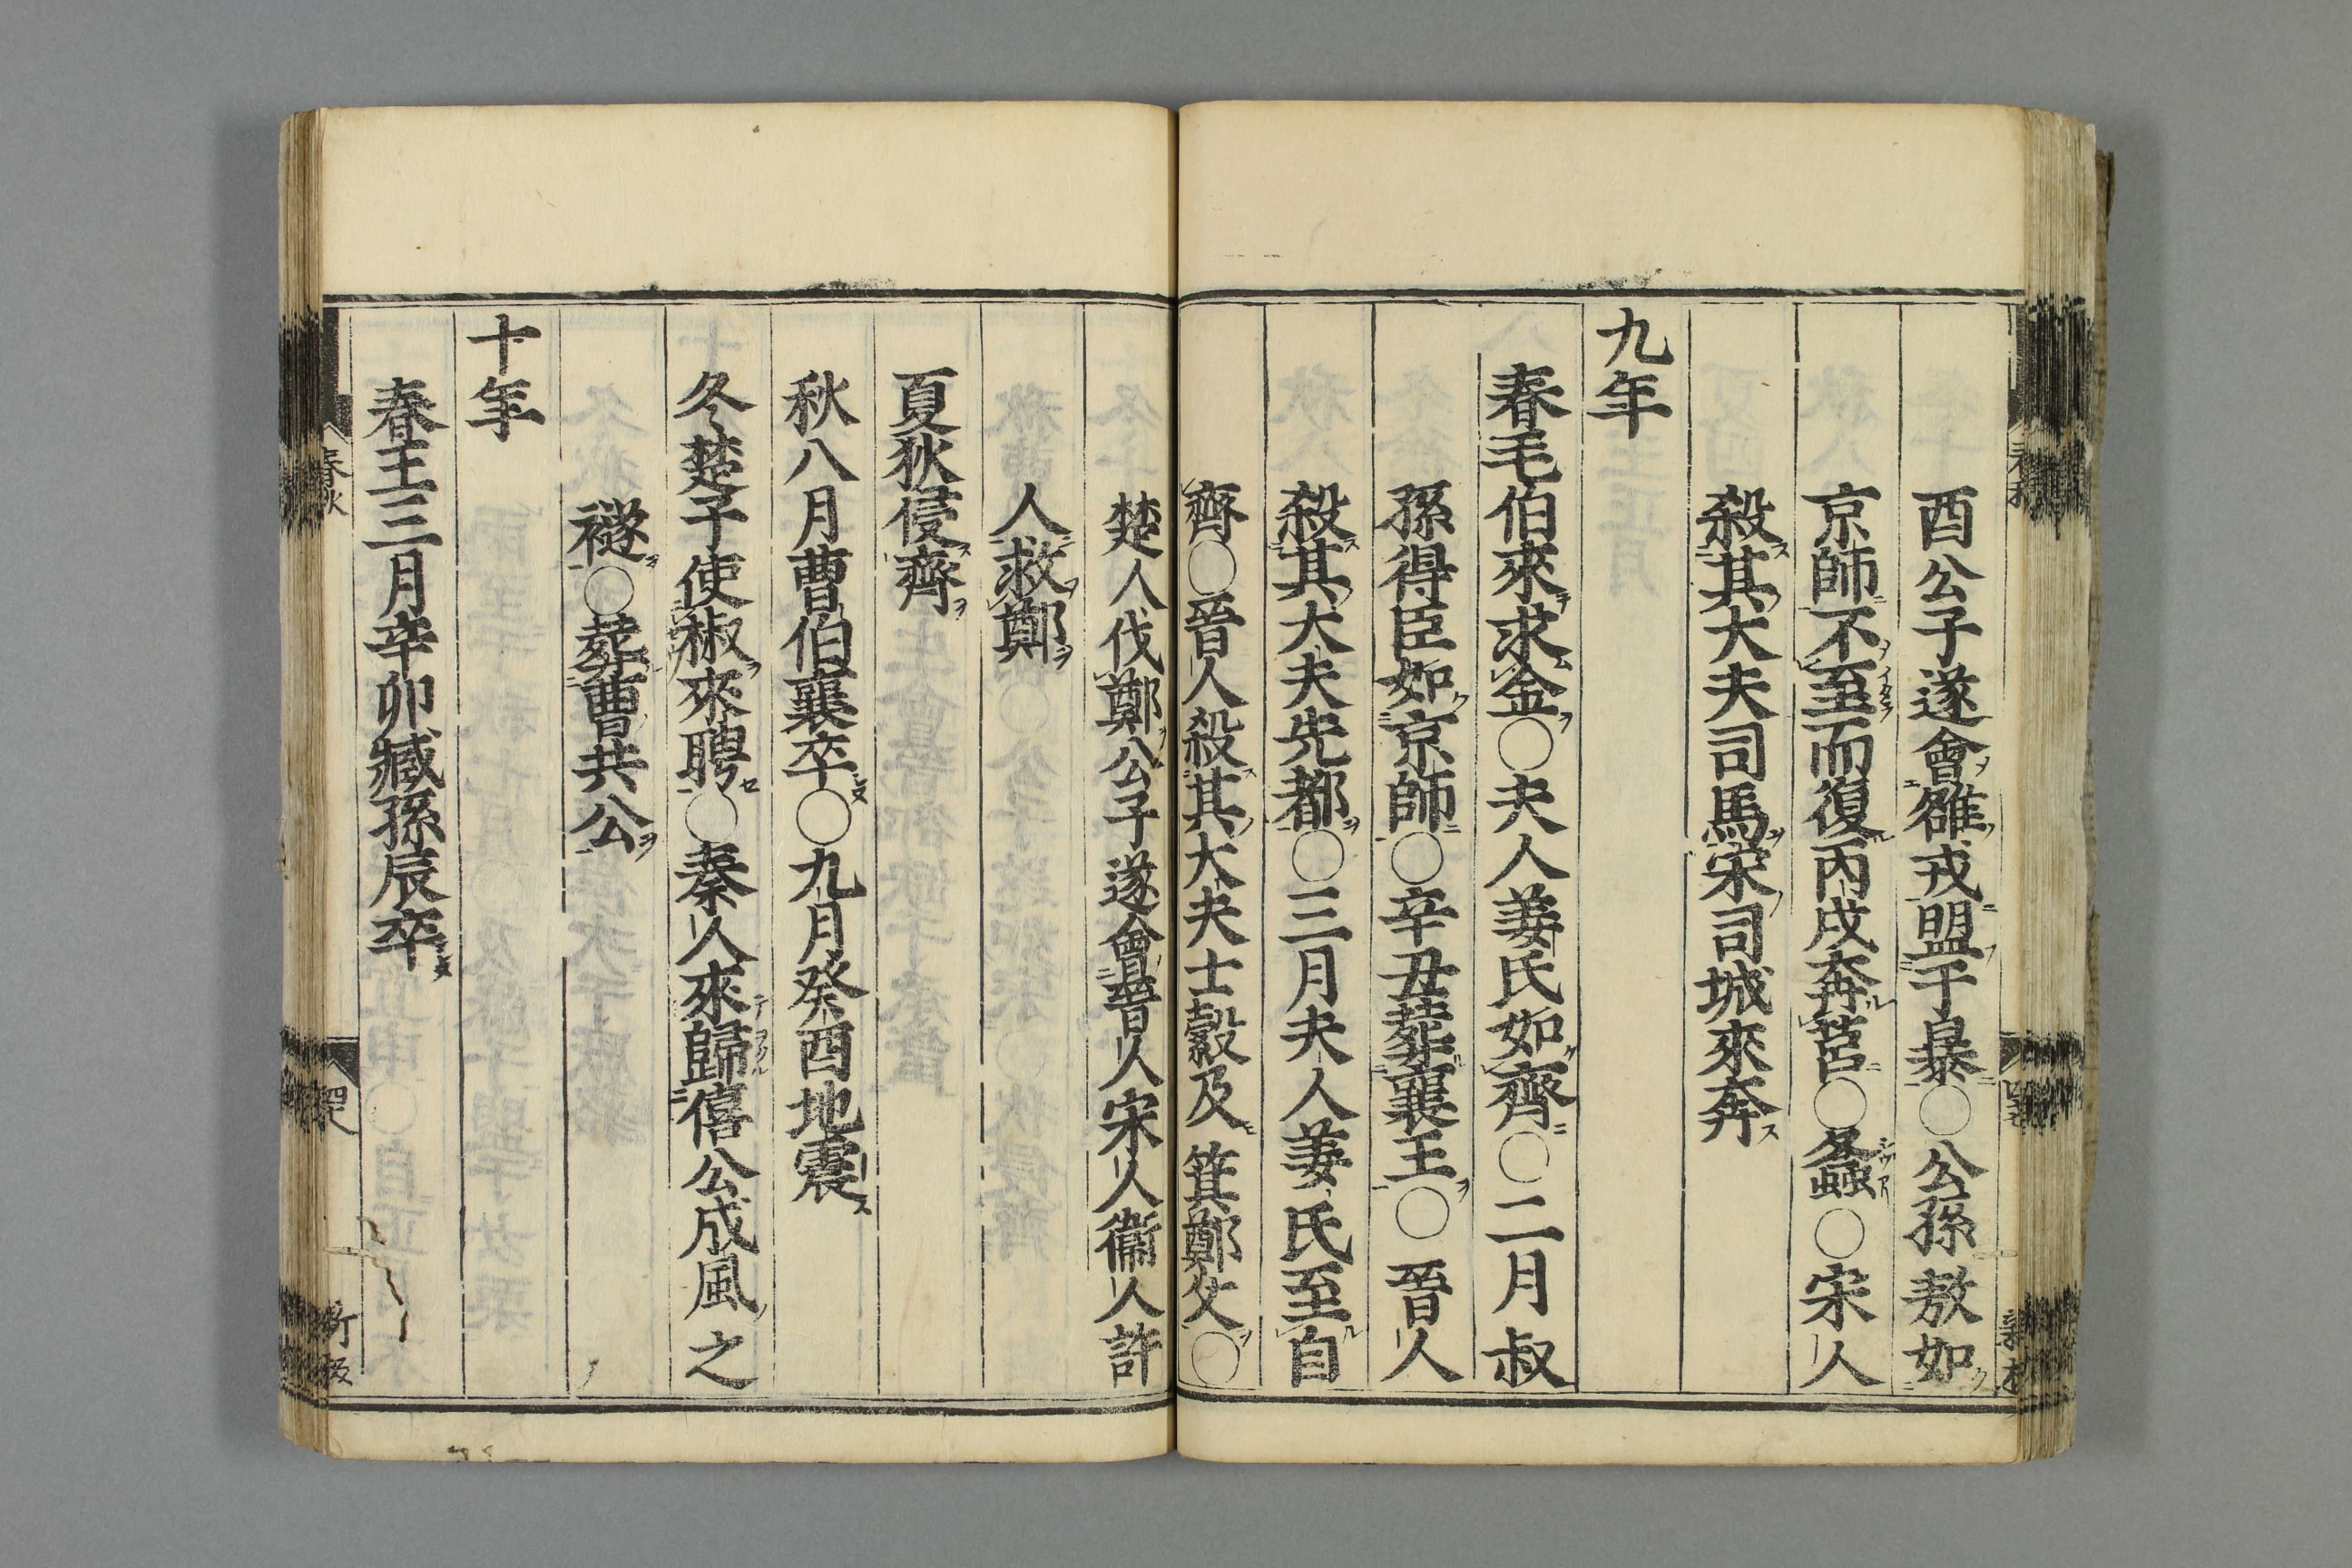 酉公子遂會雒戎盟于暴○公孫敖如
京師不至而復丙戌奔莒○螽○宋人
殺其大夫司馬宋司城來奔
九年
春毛伯來求金○夫人姜氏如齊○二月叔
孫得臣如京師○辛丑葬襄王○晉人
殺其大夫先都○三月夫人姜氏至自
齊○晉人殺其大夫士縠及箕鄭父○
楚人伐鄭公子遂會晉人宋人衞人許
人救鄭
夏狄侵齊
秋八月曹伯襄卒○九月癸酉地震
冬楚子使椒來聘○秦人來歸僖公成風之
襚○葬曹共公
十年
春王三月辛卯臧孫辰卒
春秋
新板